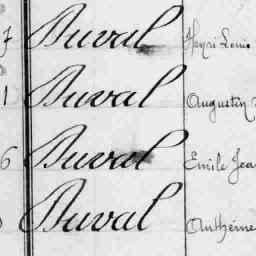 7 Duval Henri Louis
1 Duval Augustin
6 Duval Emile Jea
Duval Anthime